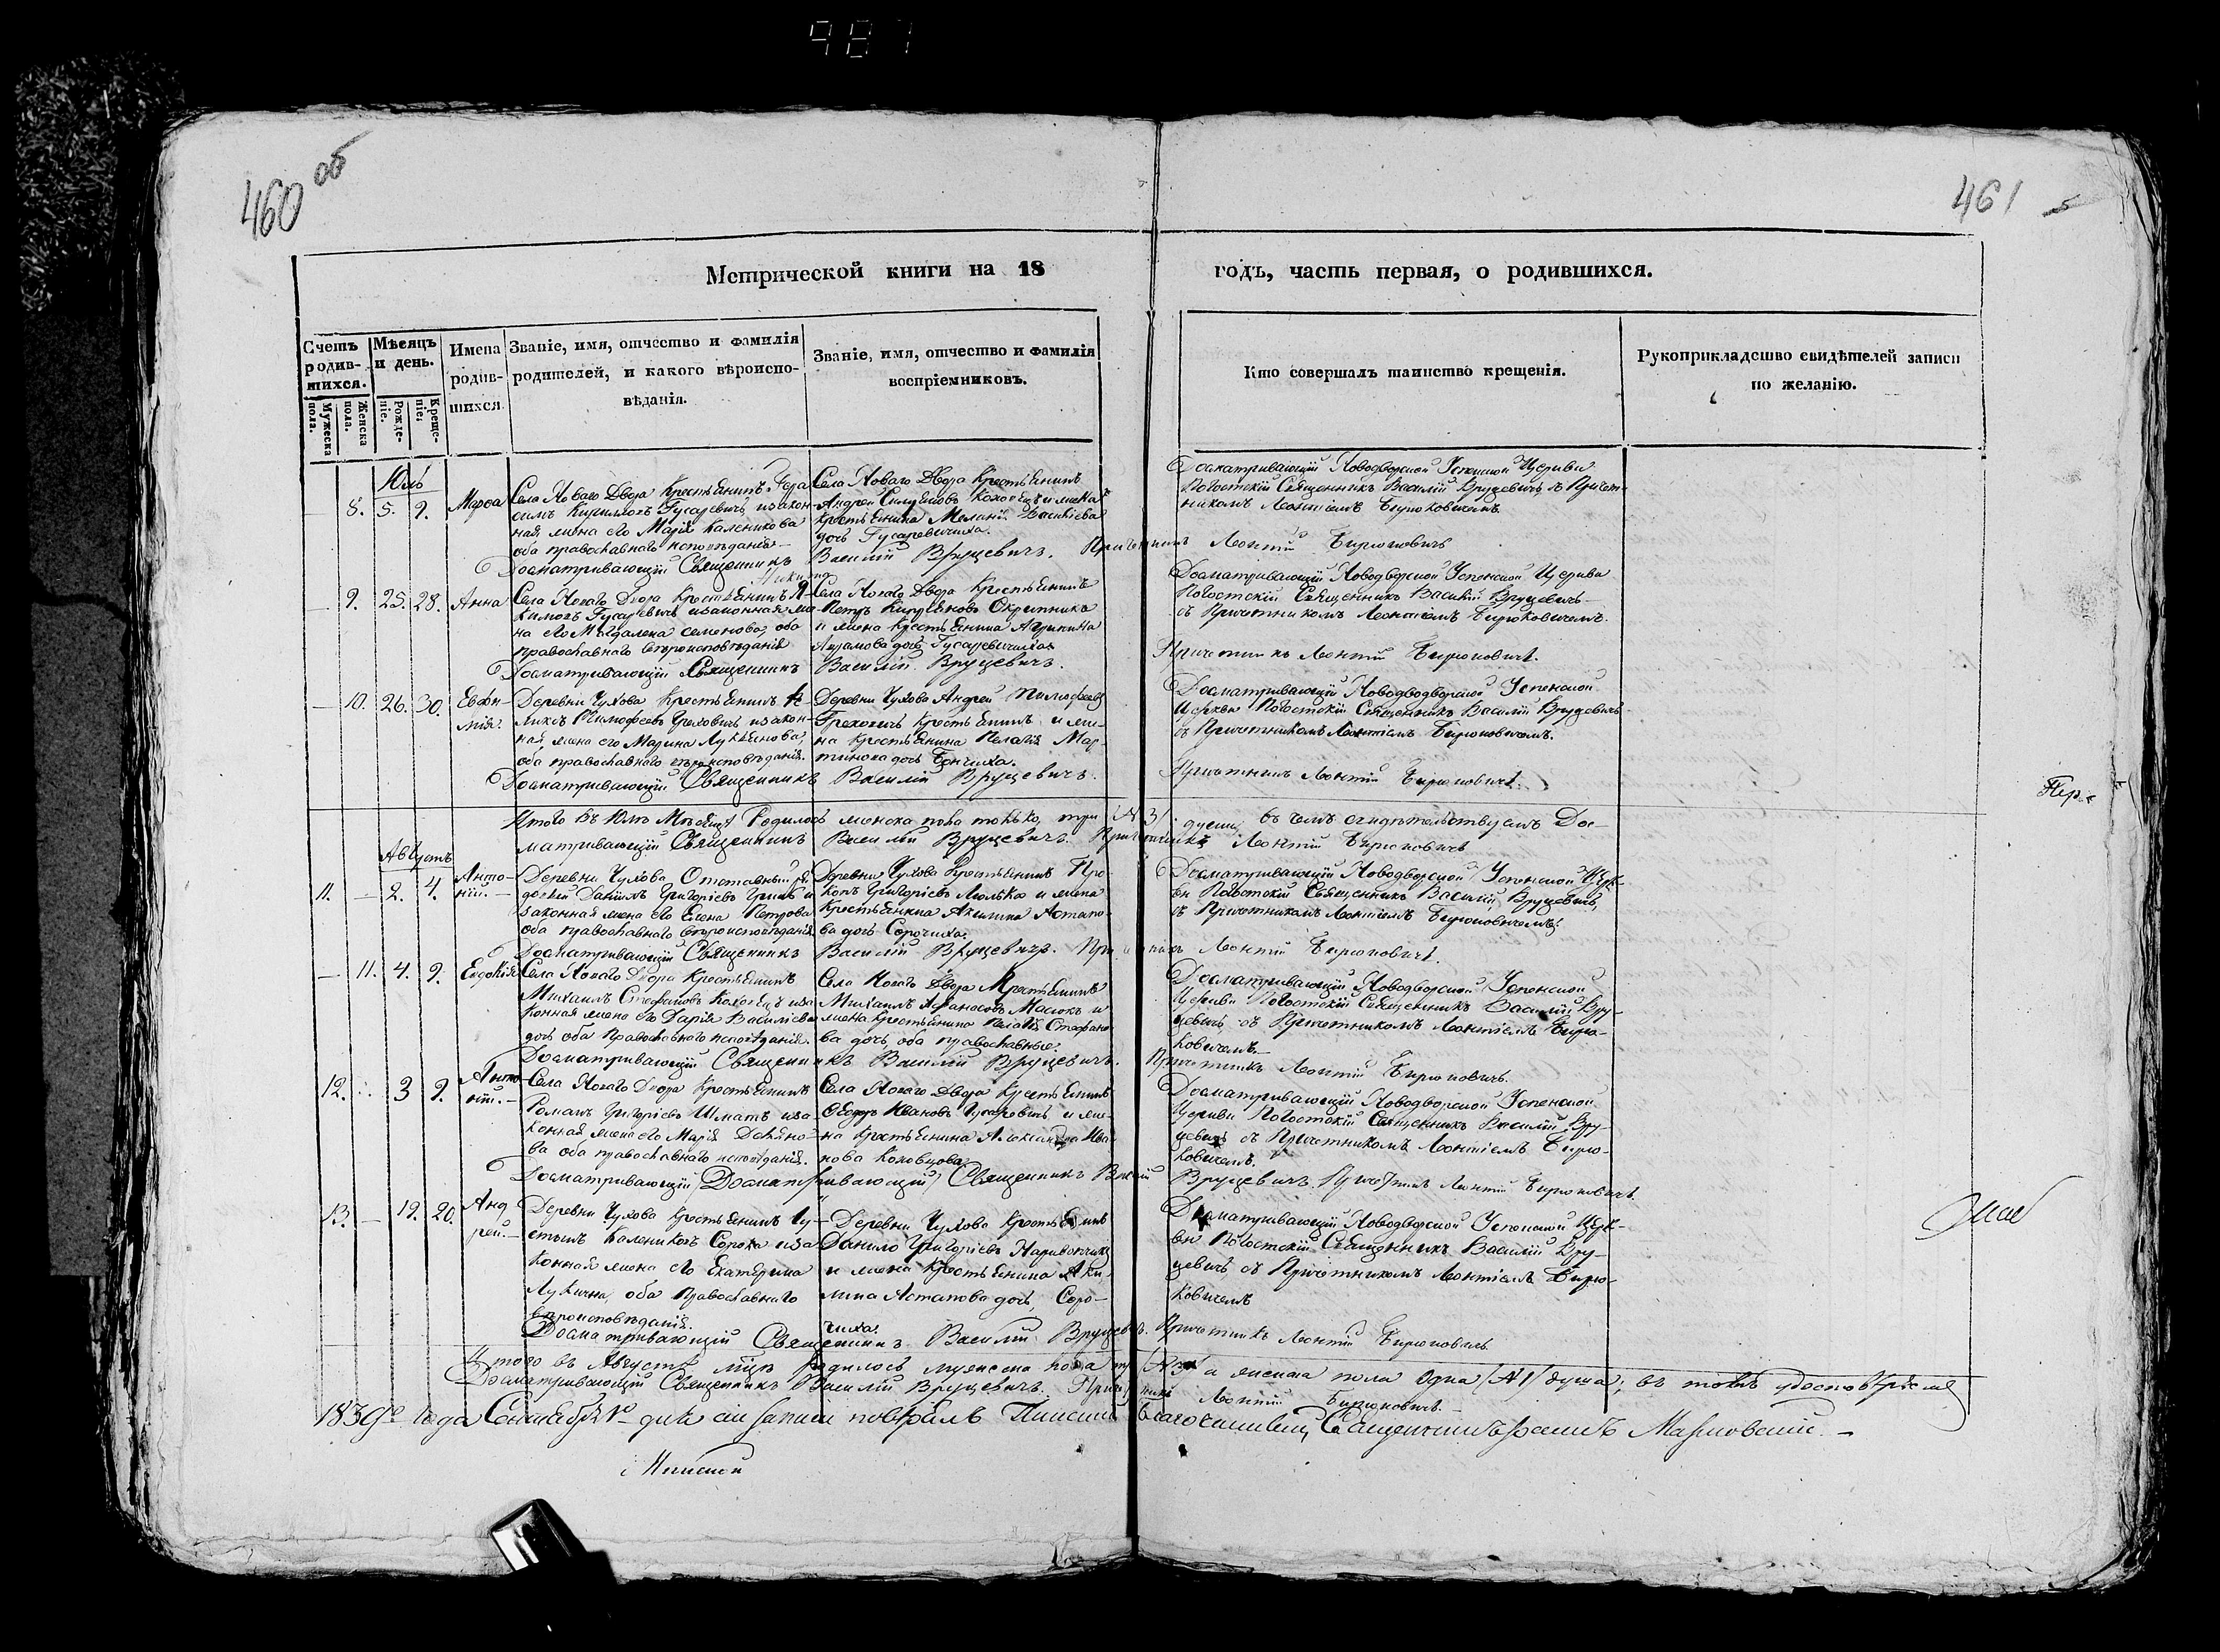 987
460 об
461
Метрической книги на 18 годъ, часть первая, о родившихся.
Счетъ родив-шихся.
Мужеска пола.
Женска пола.
Мѣсяцъ и день.
Рожде-ніе.
Креще-ніе.
Имена родив-шихся
Званіе, имя, отчество и фамилія
родителей, и какого вѣроиспо-
вѣданія.
Званіе, имя, отчество и фамилія
воспріемниковъ.
Кто совершалъ таинство крещенія.
Рукоприкладство свидѣтелей записи
по желанію.
Юль
— 8. 5. 9. Марѳа
Села Новаго Двора Крестьянинъ Гера
симъ Кириловъ Гусаревичъ изакон-
ная жена его Марія Каленикова
оба православнаго исповѣданія
Села Новаго Двора Крестьянинъ
Андрей Коховецъ и жена
Крестьянина Меланія Васильева
дочь Гусаревичиха.
Досматривающій Новодворской Успенской Церкви
Погостскій Священникъ Василій Вруцевичъ съ Причет-
никомъ Леонтіемъ Бирюковичемъ
Досматривающій Священникъ Василій Вруцевичъ. Причетникъ Леонтій Бирюковичъ
— 9. 25. 28. Анна
Села Новаго Двора Крестьянинъ
Гусаревичъ изаконная же-
на его Магдалена Семенова, оба
православнаго вѣроисповѣданія
Села Новаго Двора Крестьянинъ
Петръ Скрипникъ
и жена Крестьянина Агрипина
дочь Гусаревичиха
Досматривающій Новодворской Успенской Церкви
Погостскій Священникъ Василій Вруцевичъ
съ Причетникомъ Леонтіемъ Бирюковичемъ.
Досматривающій Священникъ Василій Вруцевичъ. Причетникъ Леонтій Бирюковичъ.
— 10. 26. 30. Евфи-
мія.
Деревни Чухова Крестьянинъ
Тимофеевъ Греховичъ изакон-
ная жена его Марина Лукьянова,
оба православнаго вѣроисповѣданія.
Деревни Чухова Андрей Тимофеевъ
Греховичъ Крестьянинъ и же-
на Крестьянина Пелагія Мар-
тинова дочь
Досматривающій Новодводворской Успенской
Церкви Погостскій Священникъ Василій Вруцевичъ
съ Причетникомъ Леонтіемъ Бирюковичемъ.
Досматривающій Священникъ Василій Вруцевичъ. Причетникъ Леонтій Бирюковичъ.
Итого въ Юлѣ Мѣсяцѣ Родилось женска пола только три (№ 3) души, въ чемъ свидѣтельствуемъ Дос-
матривающій Священникъ Василій Вруцевичъ. Причетникъ Леонтій Бирюковичъ
Августъ
11. — 2. 4. Анто-
ній.
Деревни Чухова Отставный
Даніилъ Григорієвъ и
законная жена его Елена Петрова
оба православнаго вѣроисповѣданія
Деревни Чухова Крестьянинъ Про-
копъ Григорієвъ и жена
Крестьянина Акилина Астапо-
ва дочь Сорочиха.
Досматривающій Новодворской Успенской Церк-
ви Погостскій Священникъ Василій Вруцевичъ,
съ Причетникомъ Леонтіемъ Бирюковичемъ.
Досматривающій Священникъ Василій Вруцевичъ. Причетникъ Леонтій Бирюковичъ.
— 11. 4. 9. Евдокія
Села Новаго Двора Крестьянинъ
Михаилъ Стефановъ Коховецъ иза
конная жена его Дарія Василіева
дочь оба Православнаго исповѣданія.
Села Новаго Двора Крестьянинъ
Михаилъ Афанасовъ Масюкъ и
жена Крестьянина Пелагія Стефано
ва дочь, оба православные.
Досматривающій Новодворской Успенской
Церкви Погостскій Священникъ Василій Вру-
цевичъ съ Причетникомъ Леонтіемъ Бирю-
ковичемъ.
Досматривающій Священникъ Василій Вруцевичъ. Причетникъ Леонтій Бирюковичъ.
12. 3 9. Анто
ній.
Села Новаго Двора Крестьянинъ
Романъ Григорієвъ Шматъ иза
конная жена его Марія Демяно-
ва оба православнаго исповѣданія.
Села Новаго Двора Крестьянинъ
Ѳеодоръ Ивановъ Гусаревичъ и же-
на Крестьянина Александра Ива
нова Коховцова
Досматривающій Новодворской Успенской
Церкви Погостскій Священникъ Василій Вру-
цевичъ съ Причетникомъ Леонтіемъ Бирю-
ковичемъ.
Досматривающій (Досматривающій) Священникъ Василій Вруцевичъ. Причетникъ Леонтій Бирюковичъ.
13. — 19. 20. Анд
рей.
Деревни Чухова Крестьянинъ Іу-
стинъ Калениковъ Сорока иза
конная жена его Екатерина
Лукична, оба Православнаго
вѣроисповѣданія.
Деревни Чухова Крестьянинъ
Данило Григорієвъ
и жена Крестьянина Аки-
лина Астапова дочь, Соро-
чиха.
Досматривающій Новодворской Успенской Церк-
ви Погостскій Священникъ Василій Вру-
цевичъ съ Причетникомъ Леонтіемъ Бирю-
ковичемъ
Досматривающій Священникъ Василій Вруцевичъ. Причетникъ Леонтій Бирюковичъ.
Итого въ Августѣ родилось мужеска пола три (№ 3) а женска пола одна (№ 1) душа; въ томъ
Досматривающій Священникъ Василій Вруцевичъ. Причетникъ Леонтій Бирюковичъ.
1839го Года Сентября дня сіи записи повѣрялъ Пинскій Благочинный, Священникъ